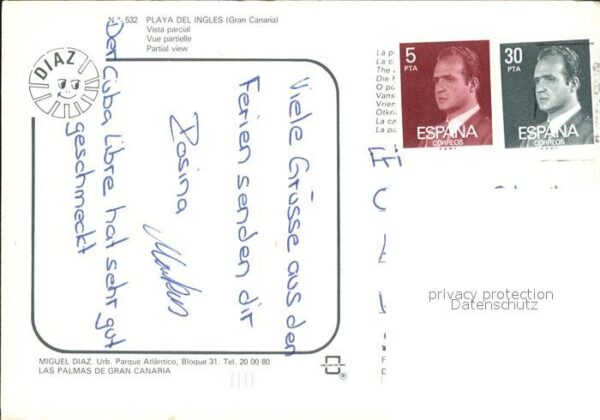 N.º 532 PLAYA DEL INGLES (Gran Canaria)
Vista parcial
Vue partielle
Partial view
DIAZ
Viele Grüsse aus den
Ferien senden dir
Rosina
Markus
Der Cuba Libre hat sehr gut
geschmeckt
5
PTA
ESPAÑA
CORREOS
30
PTA
ESPAÑA
CORREOS
privacy protection
Datenschutz
MIGUEL DIAZ. Urb. Parque Atlántico, Bloque 31. Tel. 20 00 80
LAS PALMAS DE GRAN CANARIA